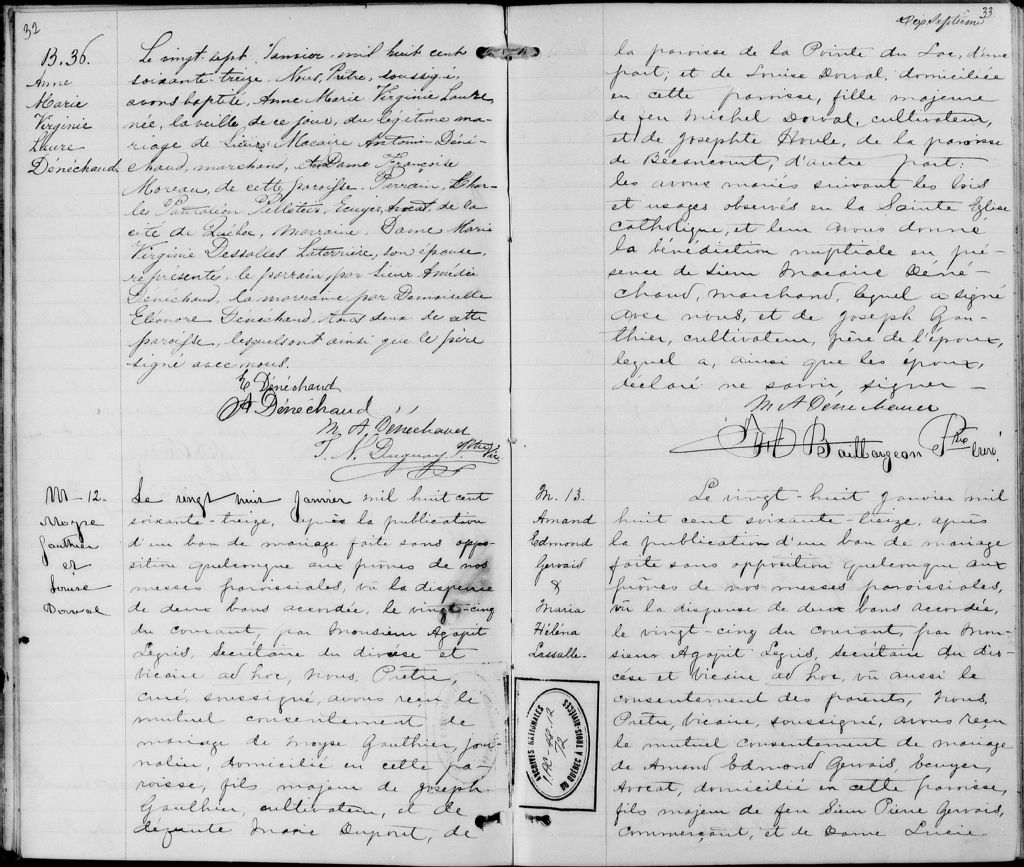 32
B. 36.
Anne
Marie
Virginie
Laure
Dénéchaud.
Le vingt-sept Janvier, mil huit cent
soixante-treize, Nous, Prêtre, soussigné,
avons baptisé, Anne Marie Virginie Laure,
née, la veille de ce jour, du légitime ma-
riage de Sieur Macaire Antonin Déné-
chaud, marchand, et Dame Françoise
Moreau, de cette paroisse. Parrain, Char-
les Pantaléon Pelletier, Ecuyer, Avocat, de la
cité de Québec, marraine, Dame Marie
Virginie Dessalles Laterrière, son épouse,
représentés, le parrain par Sieur Amédée
Dénéchaud, la marraine par Demoiselle
Eléonore Dénéchaud, tous deux de cette
paroisse, lesquels ont ainsi que le père
signé avec nous.
E Dénéchaud
A Dénéchaud
M A Dénéchaud
T. N. Duguay Ptre Vic
M - 12 -
Moyse
Gauthier
et
Louise
Dorval
Le vingt huit Janvier mil huit cent
soixante-treize, après la publication
d'un ban de mariage faite sans oppo-
sition quelconque aux prônes de nos
messes paroissiales, vû la dispense
de deux bans accordée, le vingt-cinq
du courant, par Monsieur Agapit
Legris, Secrétaire du diocèse et
vicaire ad hoc, Nous, Prêtre,
curé, soussigné, avons reçu le
mutuel consentement de
mariage de Moyse Gauthier, jour-
nalier, domicilié en cette pa-
roisse, fils majeur de Joseph
Gauthier, cultivateur, et de
défunte Marie Dupont, de
33
Dix Septième
la paroisse de la Pointe du Lac, d'une
part; et de Louise Dorval, domiciliée
en cette paroisse, fille majeure
de feu Michel Dorval, cultivateur,
et de Josephte Houle, de la paroisse
de Bécancourt, d'autre part:
les avons mariés suivant les lois
et usages observés en la Sainte Eglise
Catholique, et leur avons donné
la bénédiction nuptiale en pré-
sence de Sieur Macaire Déné-
chaud, marchand, lequel a signé
avec nous, et de Joseph Gau-
thier, cultivateur, père de l'époux,
lequel a, ainsi que les époux,
déclaré ne savoir signer -
M A Dénéchaud
Baillargeon Ptre curé.
M. 13.
Amand
Edmond
Gervais
&
Maria
Héléna
Lassalle -
Le vingt-huit Janvier mil
huit cent soixante-treize, après
la publication d'un ban de mariage
faite sans opposition quelconque aux
prônes de nos messes paroissiales,
vû la dispense de deux bans accordée,
le vingt-cinq du courant, par Mon-
sieur Agapit Legris, Secrétaire du dio-
cèse et vicaire ad hoc, vû aussi le
consentement des parents, Nous,
Prêtre, vicaire, soussigné, avons reçu
le mutuel consentement de mariage
de Amand Edmond Gervais, Ecuyer,
Avocat, domicilié en cette paroisse,
fils majeur de feu Sieur Pierre Gervais,
Commerçant, et de Dame Lucie
ARCHIVES NATIONALES
DU QUÉBEC À TROIS-RIVIÈRES